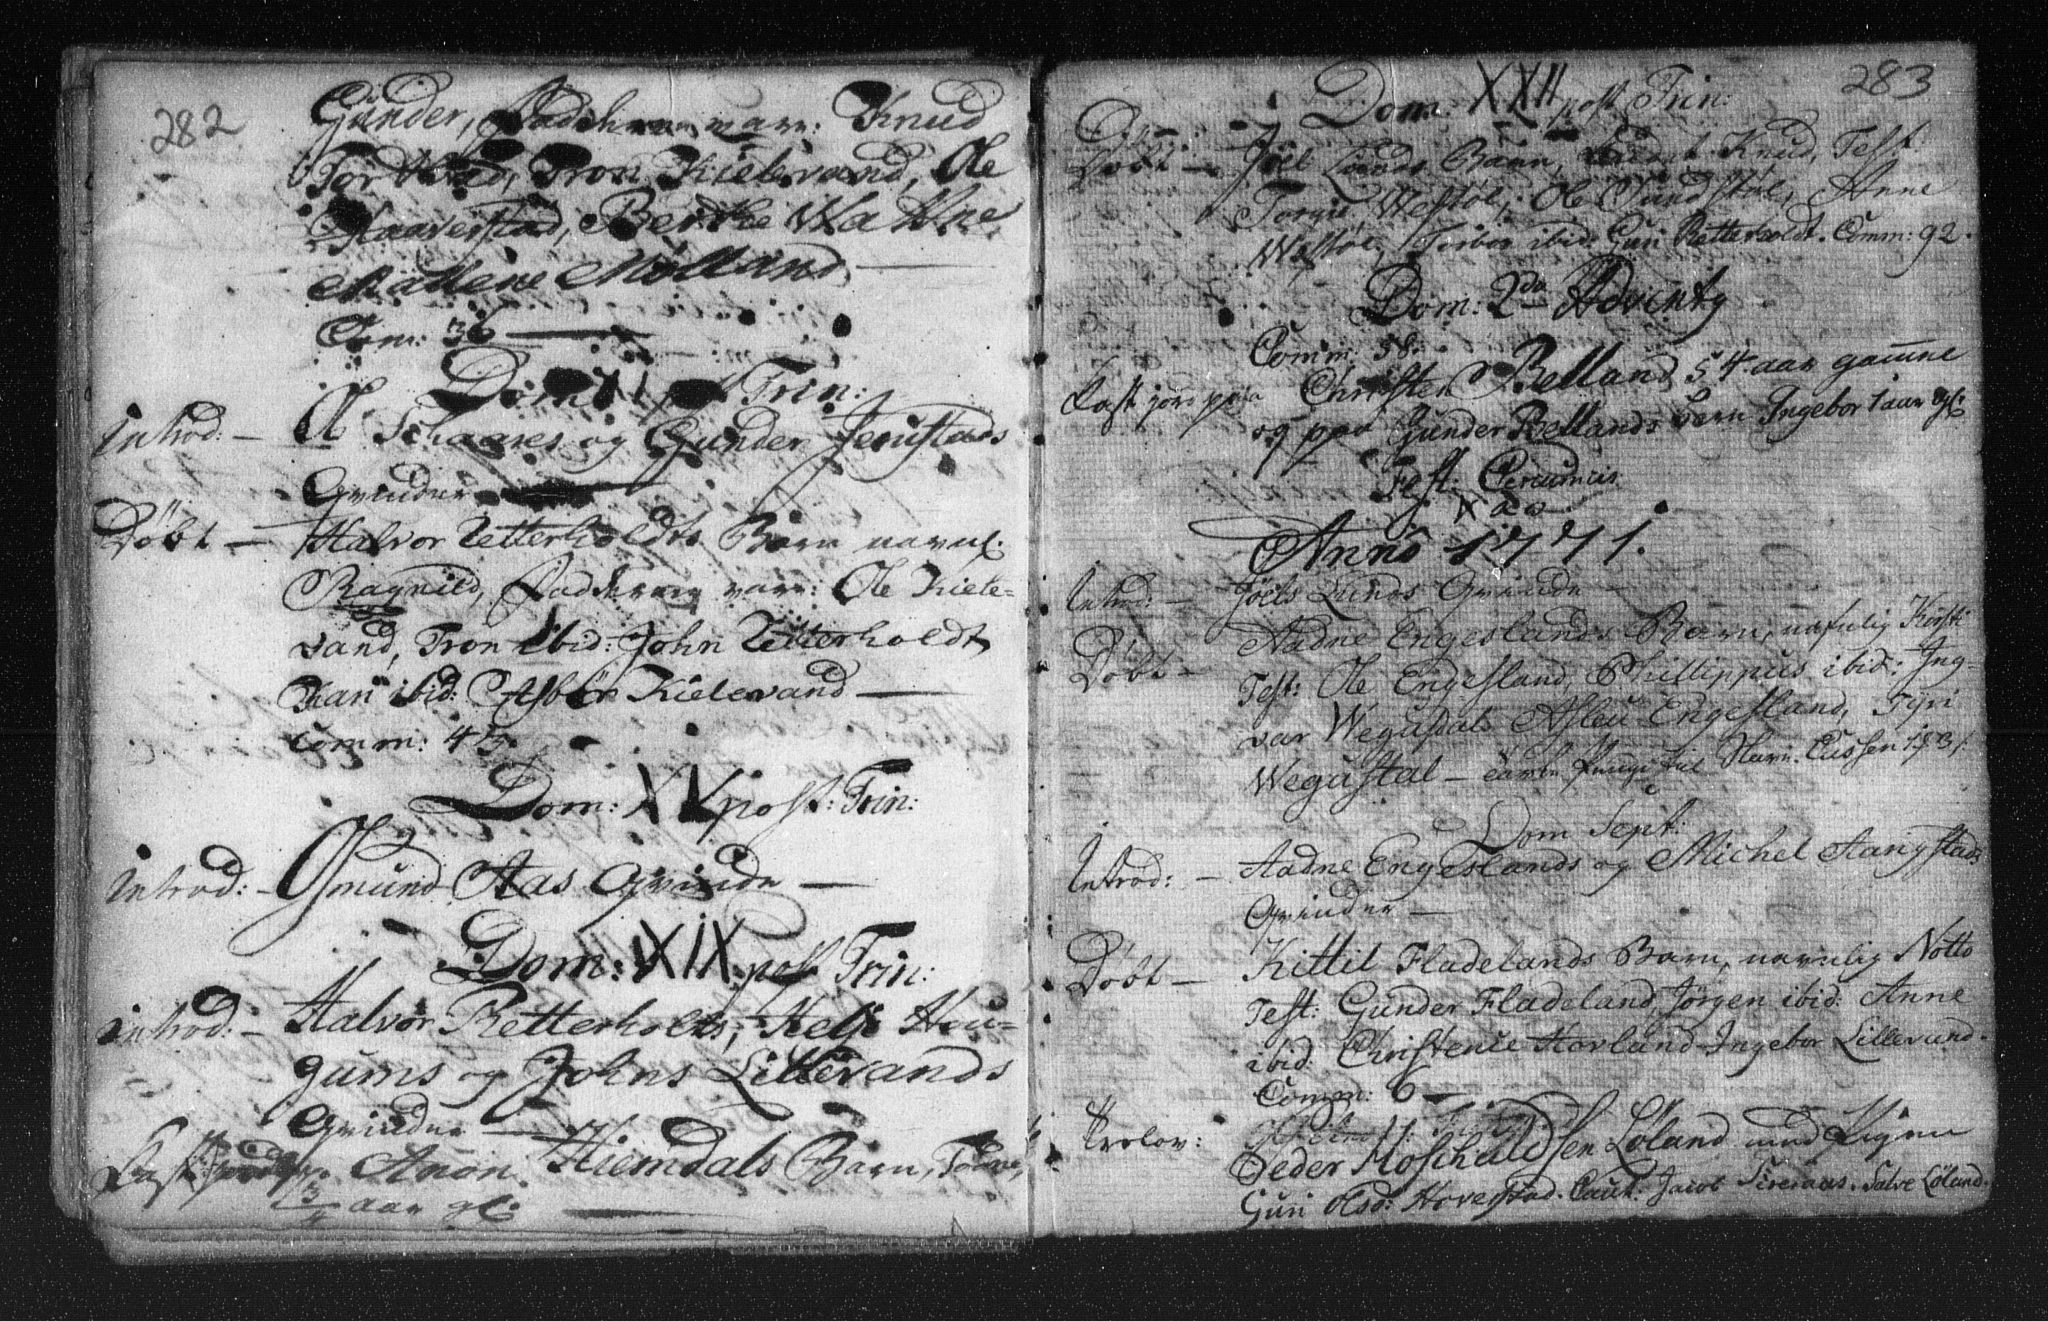 282
Gunder, Fadderne vare: Knud
Tron Kielevand, Ole
Haaverstad, Berthe Wathne,
Mallene Mølland
Com: 36
Dom: post Trin:
introd: - Schaares og Gunder Jerustads
Qvinder
Døbt - Halvor Retterholdts Barn navnl.
Ragnild, Fadderne vare: Ole Kiele-
vand, Tron ibid: John Retterholdt,
Kari ibid: Asbør Kielevand
comm: 45.
Dom: XV post: Trin:
introd: - Osmund Aas Qvinde
Dom: XIX post Trin:
introd: - Halvor Retterholts, Helje Hou-
gums og Johns Lillevands
Qvinder
Kast jord paa Anon Hiemdals Barn,
3/4 aar gl:
283
Dom: XXII post Trin:
Døbt - Joel Lunds Barn, Knud, Test:
Torgie Westøl, Ole Sundstøl, Anne
Westøl, Torbor ibid: Guri Retterholdt. Comm: 92.
Dom: 2da Advents
Comm: 58.
Kast jord paa Christen Relland 54 aar gamme
og paa Gunder Rellands barn Ingebor 1 aar gl:
Fest: Circumcis
Anno 1771.
Introd: - Joels Lunds Qvinde
Døbt - Aadne Engeslands Barn, nafnlig Kirsti
Test: Ole Engesland, Phillippus ibid: Ing-
var Wegusdal Asleu Engesland, Tyri
Wegustal
Dom Sept:
Introd: - Aadne Engeslands og Michel Aangstads
Qvinder
Døbt - Kittil Fladelands Barn, navnlig Notto
Test: Gunder Fladeland, Jørgen ibid: Anne
ibid: Christense Hovland Ingebor Lillevand.
Comm: 6
Trolov: Peder Moshuldsen Løland med Pigen
Guri Olsd: Hoverstad. Caut: Jacob Salve Løland.